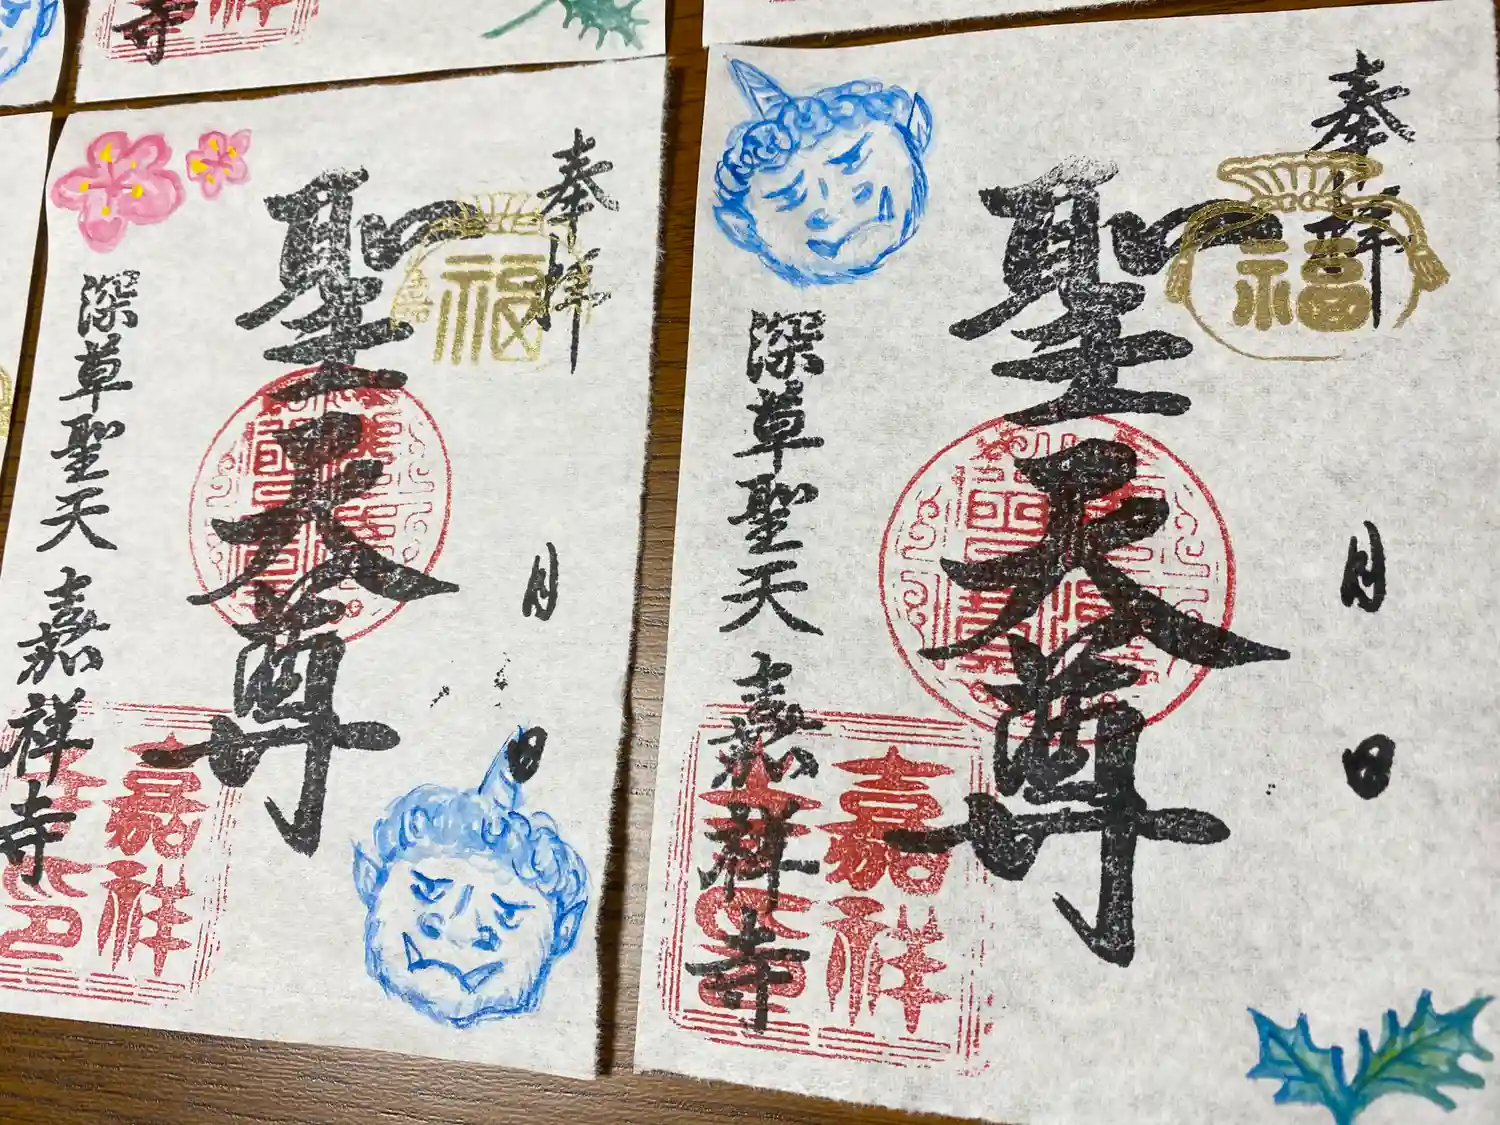 寺
奉拝
福
聖天尊
月
日
深草聖天 嘉祥寺
嘉祥
奉拝
福
聖天尊
月
日
深草聖天 嘉祥寺
嘉祥